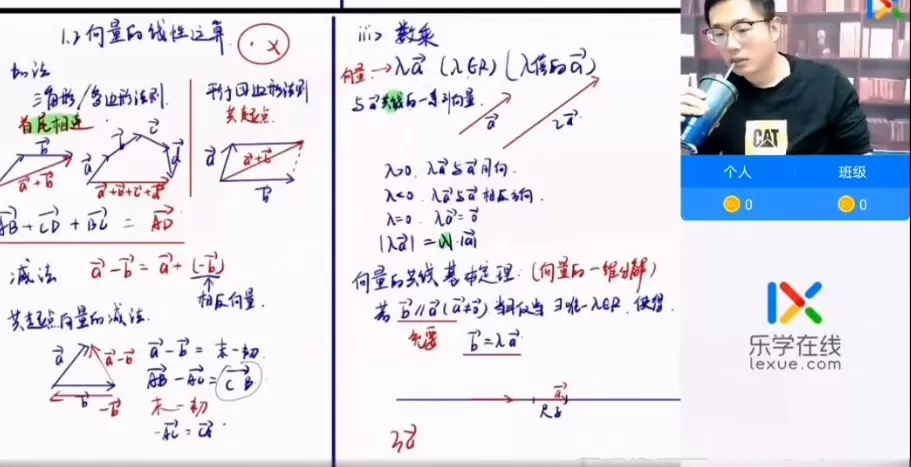 1.2 向量的线性运算
· ×
加法
三角形/多边形法则
首尾相连
平行四边形法则
共起点
a⃗ b⃗ a⃗+b⃗
a⃗ b⃗ c⃗ d⃗ a⃗+b⃗+c⃗+d⃗
a⃗ a⃗+b⃗ b⃗
AB⃗ + CD⃗ + BC⃗ = AD⃗
减法 a⃗-b⃗ = a⃗+(-b⃗)
相反向量.
共起点向量的减法.
a⃗ a⃗-b⃗ b⃗ -b⃗
a⃗-b⃗ = 末-初.
AB⃗ - AC⃗ = CB⃗
末-初
-AC⃗ = CA⃗
iii> 数乘
向量→λa⃗ (λ∈R) (λ倍的a⃗)
与a⃗共线的一系列向量.
a⃗ 2a⃗
λ>0, λa⃗与a⃗同向.
λ<0, λa⃗与a⃗相反方向.
λ=0, λa⃗=0⃗
|λa⃗| = |λ|·|a⃗|
向量的共线基本定理: (向量的一维分解)
若 b⃗∥a⃗ (a⃗≠0⃗) 当且仅当 ∃唯一λ∈R, 使得.
充要 b⃗=λa⃗
a⃗
尺子
3a⃗
CAT
个人 班级
0 0
乐学在线
lexue.com